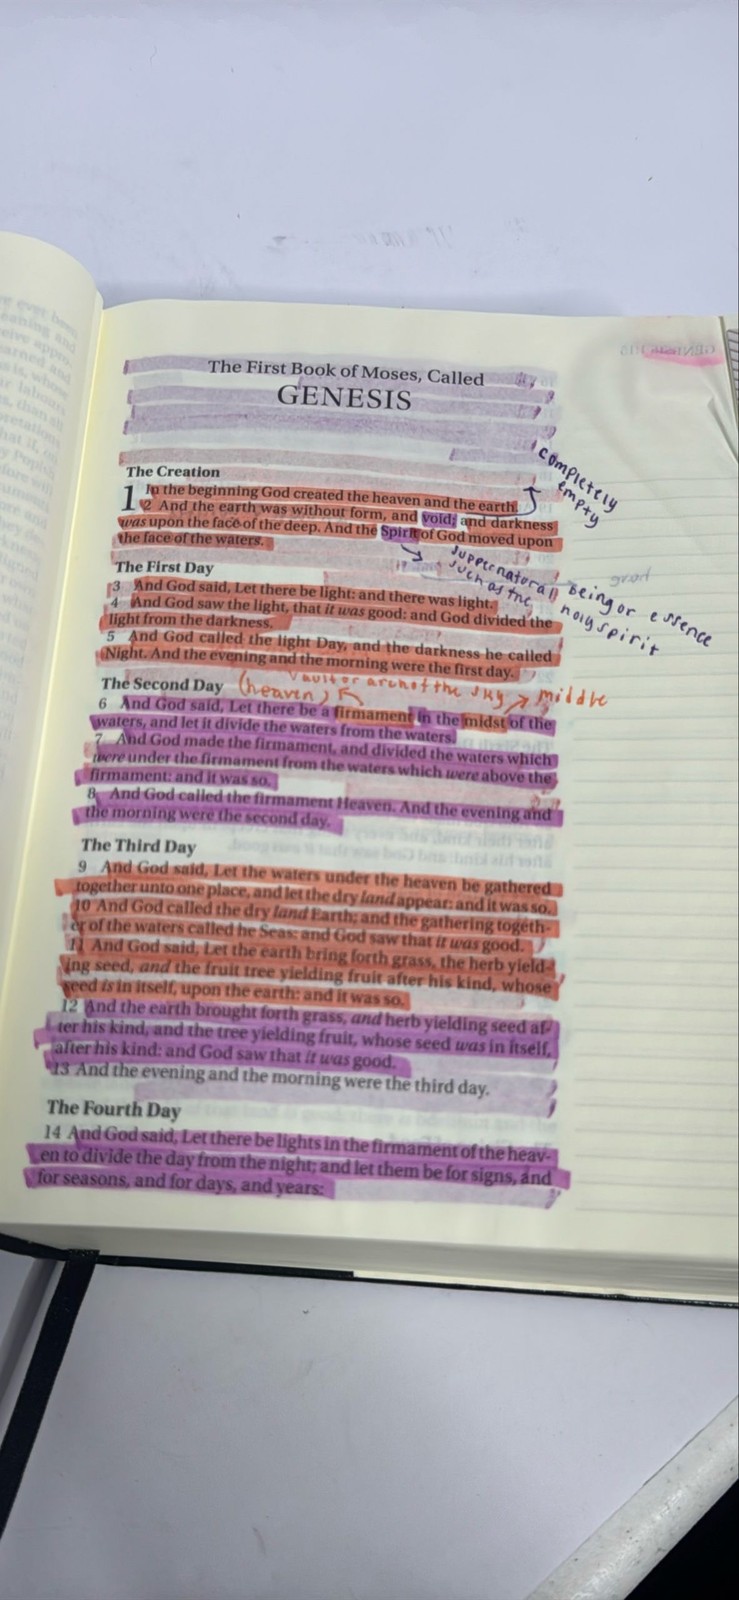 The First Book of Moses, Called
GENESIS
completely
empty
The Creation
1 In the beginning God created the heaven and the earth.
2 And the earth was without form, and void; and darkness
was upon the face of the deep. And the Spirit of God moved upon
the face of the waters.
suppernaturall being or essence
such as the holy spirit
The First Day
3 And God said, Let there be light: and there was light.
4 And God saw the light, that it was good: and God divided the
light from the darkness.
5 And God called the light Day, and the darkness he called
Night. And the evening and the morning were the first day.
vault or arch of the sky
(heaven)
middle
The Second Day
6 And God said, Let there be a firmament in the midst of the
waters, and let it divide the waters from the waters.
7 And God made the firmament, and divided the waters which
were under the firmament from the waters which were above the
firmament: and it was so.
8 And God called the firmament Heaven. And the evening and
the morning were the second day.
The Third Day
9 And God said, Let the waters under the heaven be gathered
together unto one place, and let the dry land appear: and it was so.
10 And God called the dry land Earth; and the gathering togeth-
er of the waters called he Seas: and God saw that it was good.
11 And God said, Let the earth bring forth grass, the herb yield-
ing seed, and the fruit tree yielding fruit after his kind, whose
seed is in itself, upon the earth: and it was so.
12 And the earth brought forth grass, and herb yielding seed af-
ter his kind, and the tree yielding fruit, whose seed was in itself,
after his kind: and God saw that it was good.
13 And the evening and the morning were the third day.
The Fourth Day
14 And God said, Let there be lights in the firmament of the heav-
en to divide the day from the night; and let them be for signs, and
for seasons, and for days, and years: